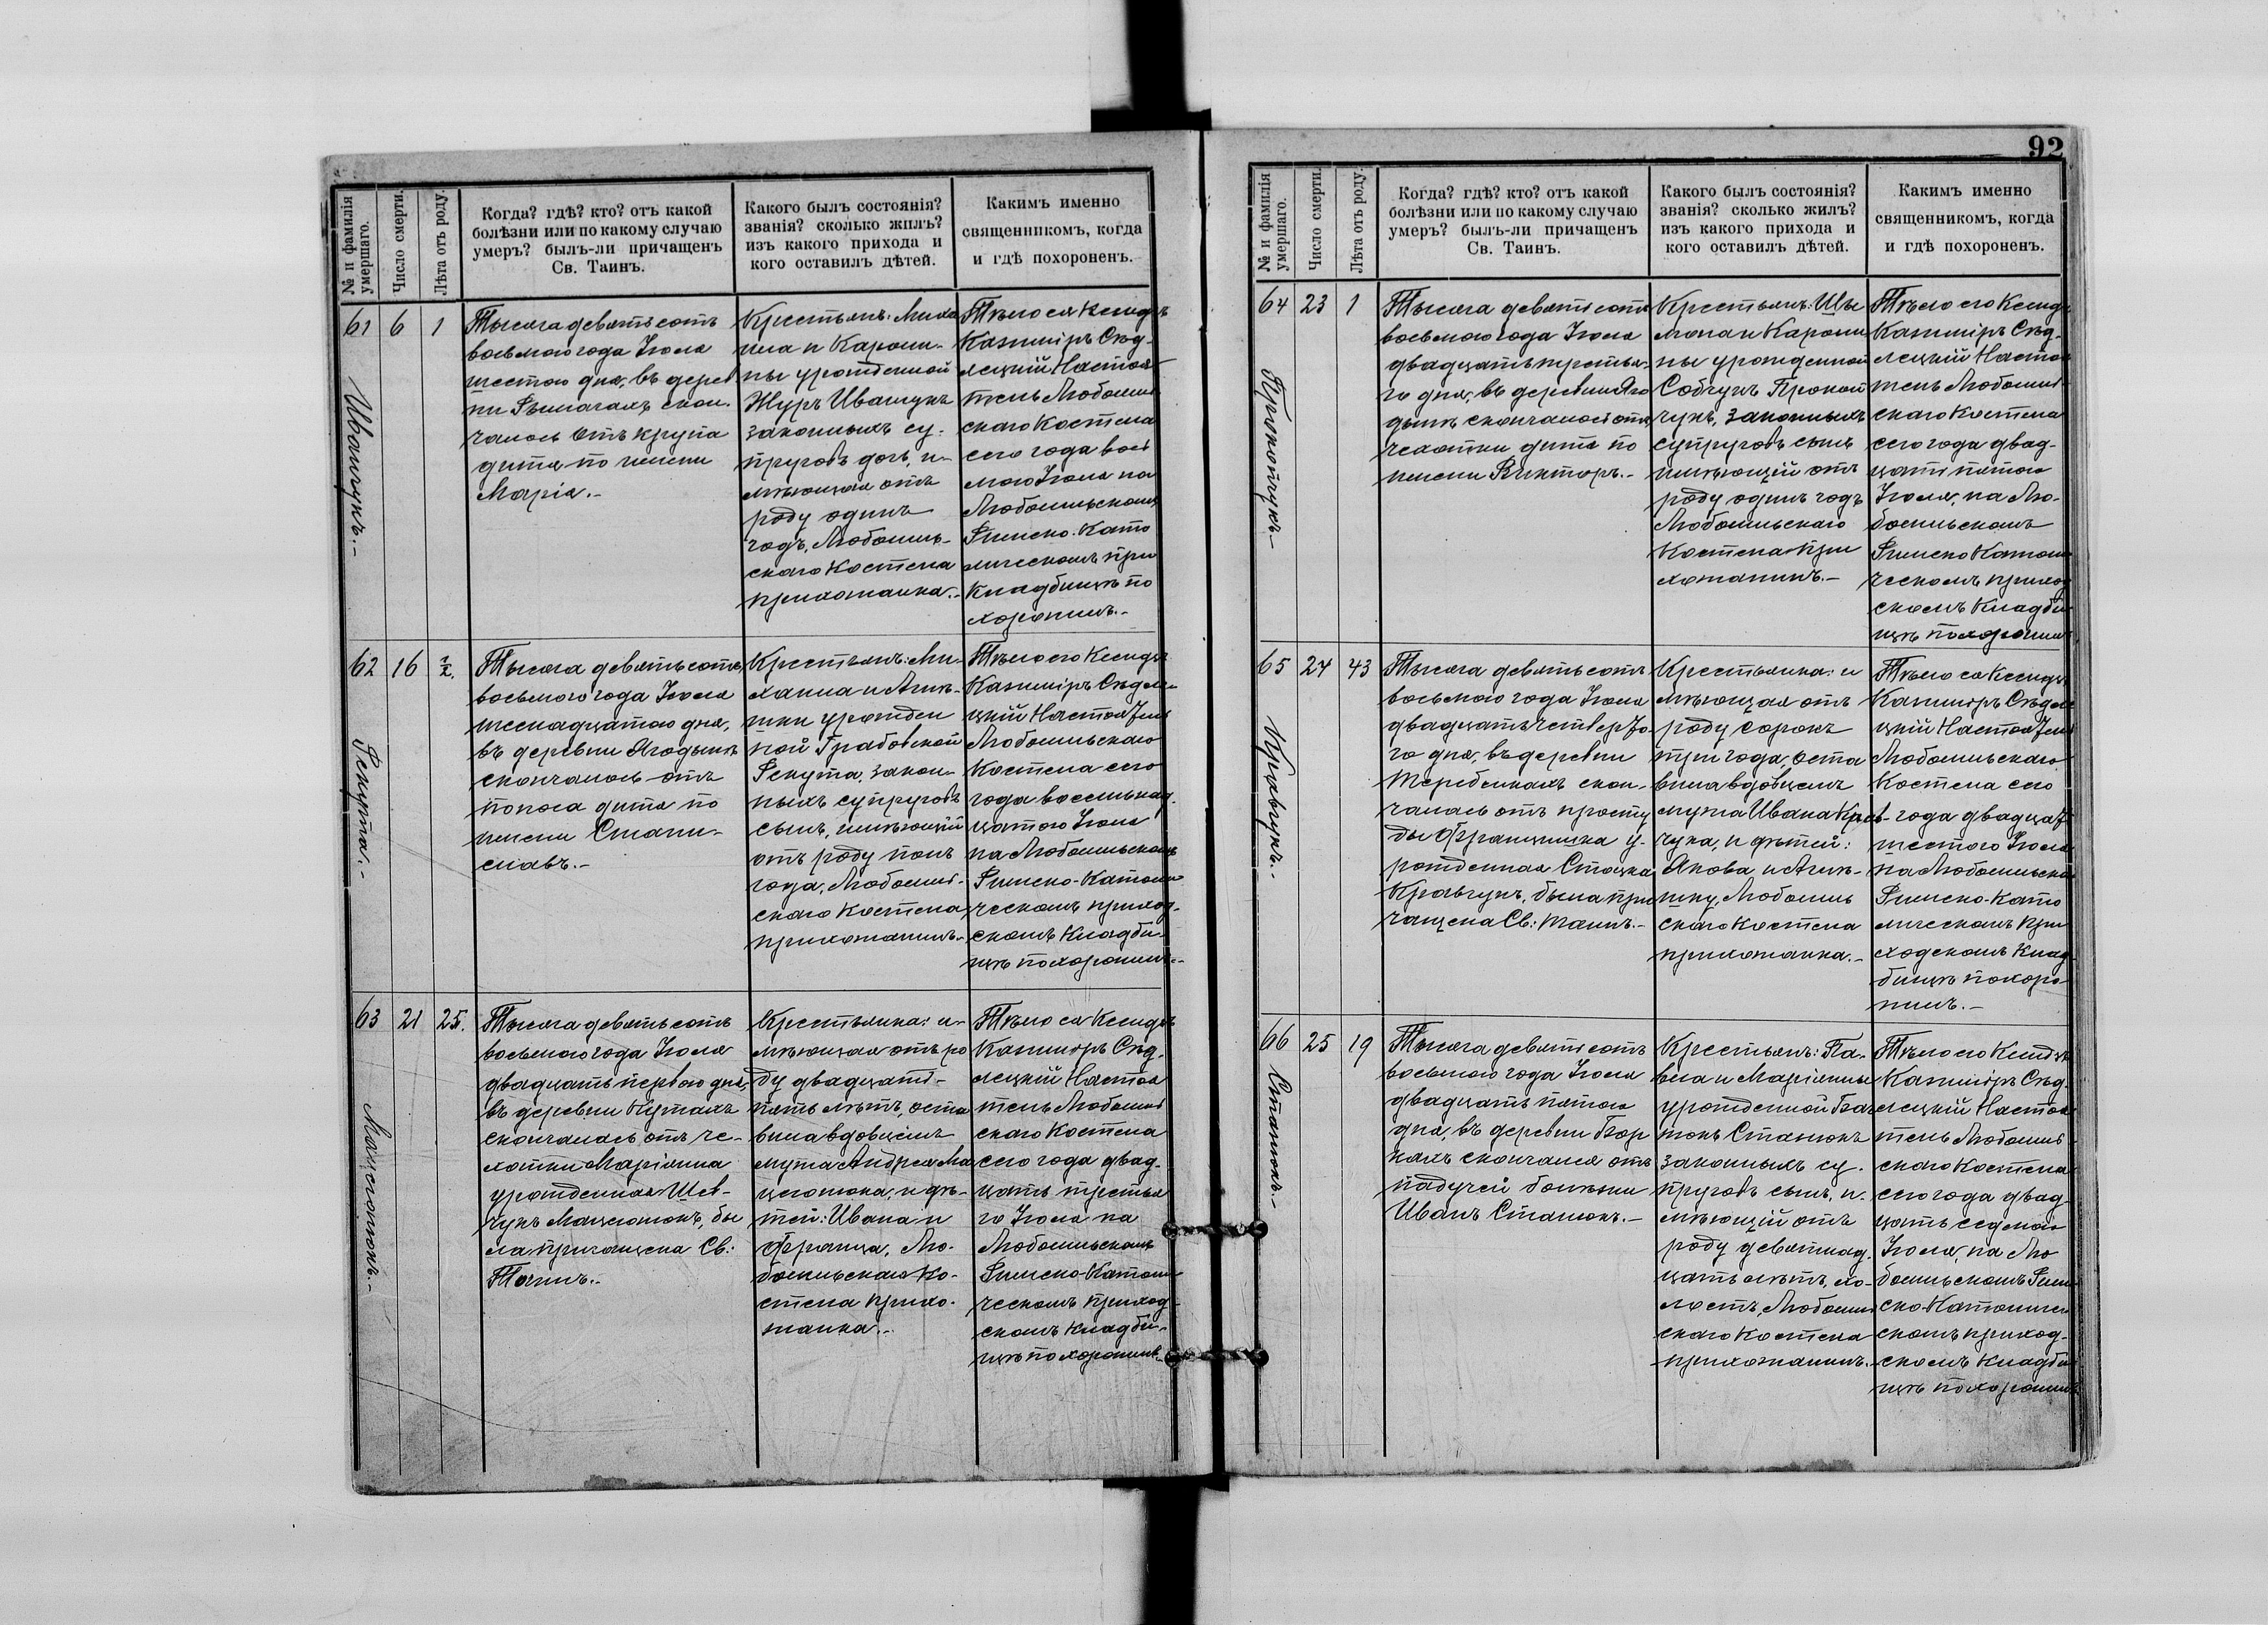 № и фамилія умершаго.
Число смерти.
Лѣта отъ роду.
Когда? гдѣ? кто? отъ какой
болѣзни или по какому случаю
умеръ? былъ-ли причащенъ
Св. Таинъ.
Какого былъ состоянія?
званія? сколько жилъ?
изъ какого прихода и
кого оставилъ дѣтей.
Какимъ именно
священникомъ, когда
и гдѣ похороненъ.
61 6 1
Иващукъ.-
Тысяча девятьсотъ
восьмого года Іюля
шестого дня, въ дерев
ни Рымачахъ скон-
чалось отъ крупа
дитя по имени
Марія.-
Крестьянъ: Миха
ила и Кароли-
ны урожденной
Журъ Иващукъ
законныхъ су-
пруговъ дочь, и-
мѣющая отъ
роду одинъ
годъ, Любомль-
скаго Костела
прихожанка.-
Тѣло ея Ксендзъ
Казимиръ Сѣд-
лецкій Настоя-
тель Любомль
скаго Костела
сего года вось
мого Іюля на
Любомльскомъ
Римско-Като
лическомъ при
Кладбищѣ по
хоронилъ.-
62 16 1/2.
Рекута.-
Тысяча девятьсотъ
восьмого года Іюля
шеснадцатого дня,
въ деревни Ягодынѣ
скончалось отъ
поноса дитя по
имени Стани-
славъ.-
Крестьянъ: Ми-
хаила и Агнѣ-
шки урожден
ной Грабовской
Рекута, закон-
ныхъ супруговъ
сынъ, имѣющій
отъ роду полъ
года, Любомль-
скаго Костела
прихожанинъ.-
Тѣло его Ксендзъ
Казимиръ Сѣдле
цкій Настоятель
Любомльскаго
Костела сего
года восемьнад-
цатого Іюля
на Любомльскомъ
Римско-Католи
ческомъ приход-
скомъ Кладби-
щѣ похоронилъ.-
63 21 25.
Мацегонюкъ.-
Тысяча девятьсотъ
восьмого года Іюля
двадцать первого дня,
въ деревни Кутахъ
скончалась отъ че-
хотки Маріянна
урожденная Шев-
чукъ Мацегонюкъ, бы
ла причащена Св:
Таинъ.-
Крестьянка: и-
мѣющая отъ ро
ду двадцать-
пять лѣтъ, оста
вила вдовцемъ
мужа Андрея Ма
цегонюка, и дѣ-
тей: Ивана и
Франца, Лю-
бомльскаго Ко-
стела прихо-
жанка.-
Тѣло ея Ксендзъ
Казимиръ Сѣд-
лецкій Настоя
тель Любомль
скаго Костела
сего года двад-
цать третья
го Іюля на
Любомльскомъ
Римско-Католи
ческомъ приход
скомъ кладби-
щѣ похоронилъ.-
92
№ и фамилія умершаго.
Число смерти.
Лѣта отъ роду.
Когда? гдѣ? кто? отъ какой
болѣзни или по какому случаю
умеръ? былъ-ли причащенъ
Св. Таинъ.
Какого былъ состоянія?
званія? сколько жилъ?
изъ какого прихода и
кого оставилъ дѣтей.
Какимъ именно
священникомъ, когда
и гдѣ похороненъ.
64 23 1
Прокопчукъ.-
Тысяча девятьсотъ
восьмого года Іюля
двадцать третья-
го дня, въ деревни Яго
дынѣ скончалось отъ
чехотки дитя по
имени Викторъ.-
Крестьянъ: Шы
мона и Кароли
ны урожденной
Собчукъ Прокоп
чукъ, законныхъ
супруговъ сынъ
имѣющій отъ
роду одинъ годъ
Любомльскаго
Костела при
хожанинъ.-
Тѣло его Ксендзъ
Казимиръ Сѣд-
лецкій Настоя
тель Любомль
скаго Костела
сего года двад-
цать пятого
Іюля, на Лю-
бомльскомъ
Римско Католи
ческомъ приход
скомъ Кладби
щѣ похоронилъ.
65 24 43
Кравчукъ.-
Тысяча девятьсотъ
восьмого года Іюля
двадцать четверто-
го дня, въ деревни
Теребейкахъ скон-
чалась отъ просту
ды Францишка у-
рожденная Стоцка
Кравчукъ, была при
чащена Св: Таинъ.-
Крестьянка: и
мѣющая отъ
роду сорокъ
три года, оста
вила вдовцемъ
мужа Ивана Крав-
чука, и дѣтей:
Якова и Агнѣ-
шку, Любомль
скаго Костела
прихожанка.-
Тѣло ея Ксендзъ
Казимиръ Сѣдле
цкій Настоятель
Любомльскаго
Костела сего
года двадцать
шестого Іюля
на Любомльском
Римско-Като
лическомъ При
ходскомъ Клад-
бищѣ похоро
нилъ.-
66 25 19
Станюкъ.-
Тысяча девятьсотъ
восьмого года Іюля
двадцать пятого
дня, въ деревни Бор
кахъ скончался отъ
падучей болѣзни
Иванъ Станюкъ.-
Крестьянъ: Па-
вла и Маріянны
урожденной
Станюкъ
законныхъ су-
пруговъ сынъ, и-
мѣющій отъ
роду девятнад-
цать лѣтъ, хо-
лостъ, Любомль
скаго Костела
прихожанинъ.-
Тѣло его Ксендзъ
Казимиръ Сѣд-
лецкій Настоя
тель Любомль
скаго Костела
сего года двад
цать седмого
Іюля, на Лю
бомльскомъ Рим
ско-Католиче
скомъ приход-
скомъ Кладби
щѣ похоронилъ